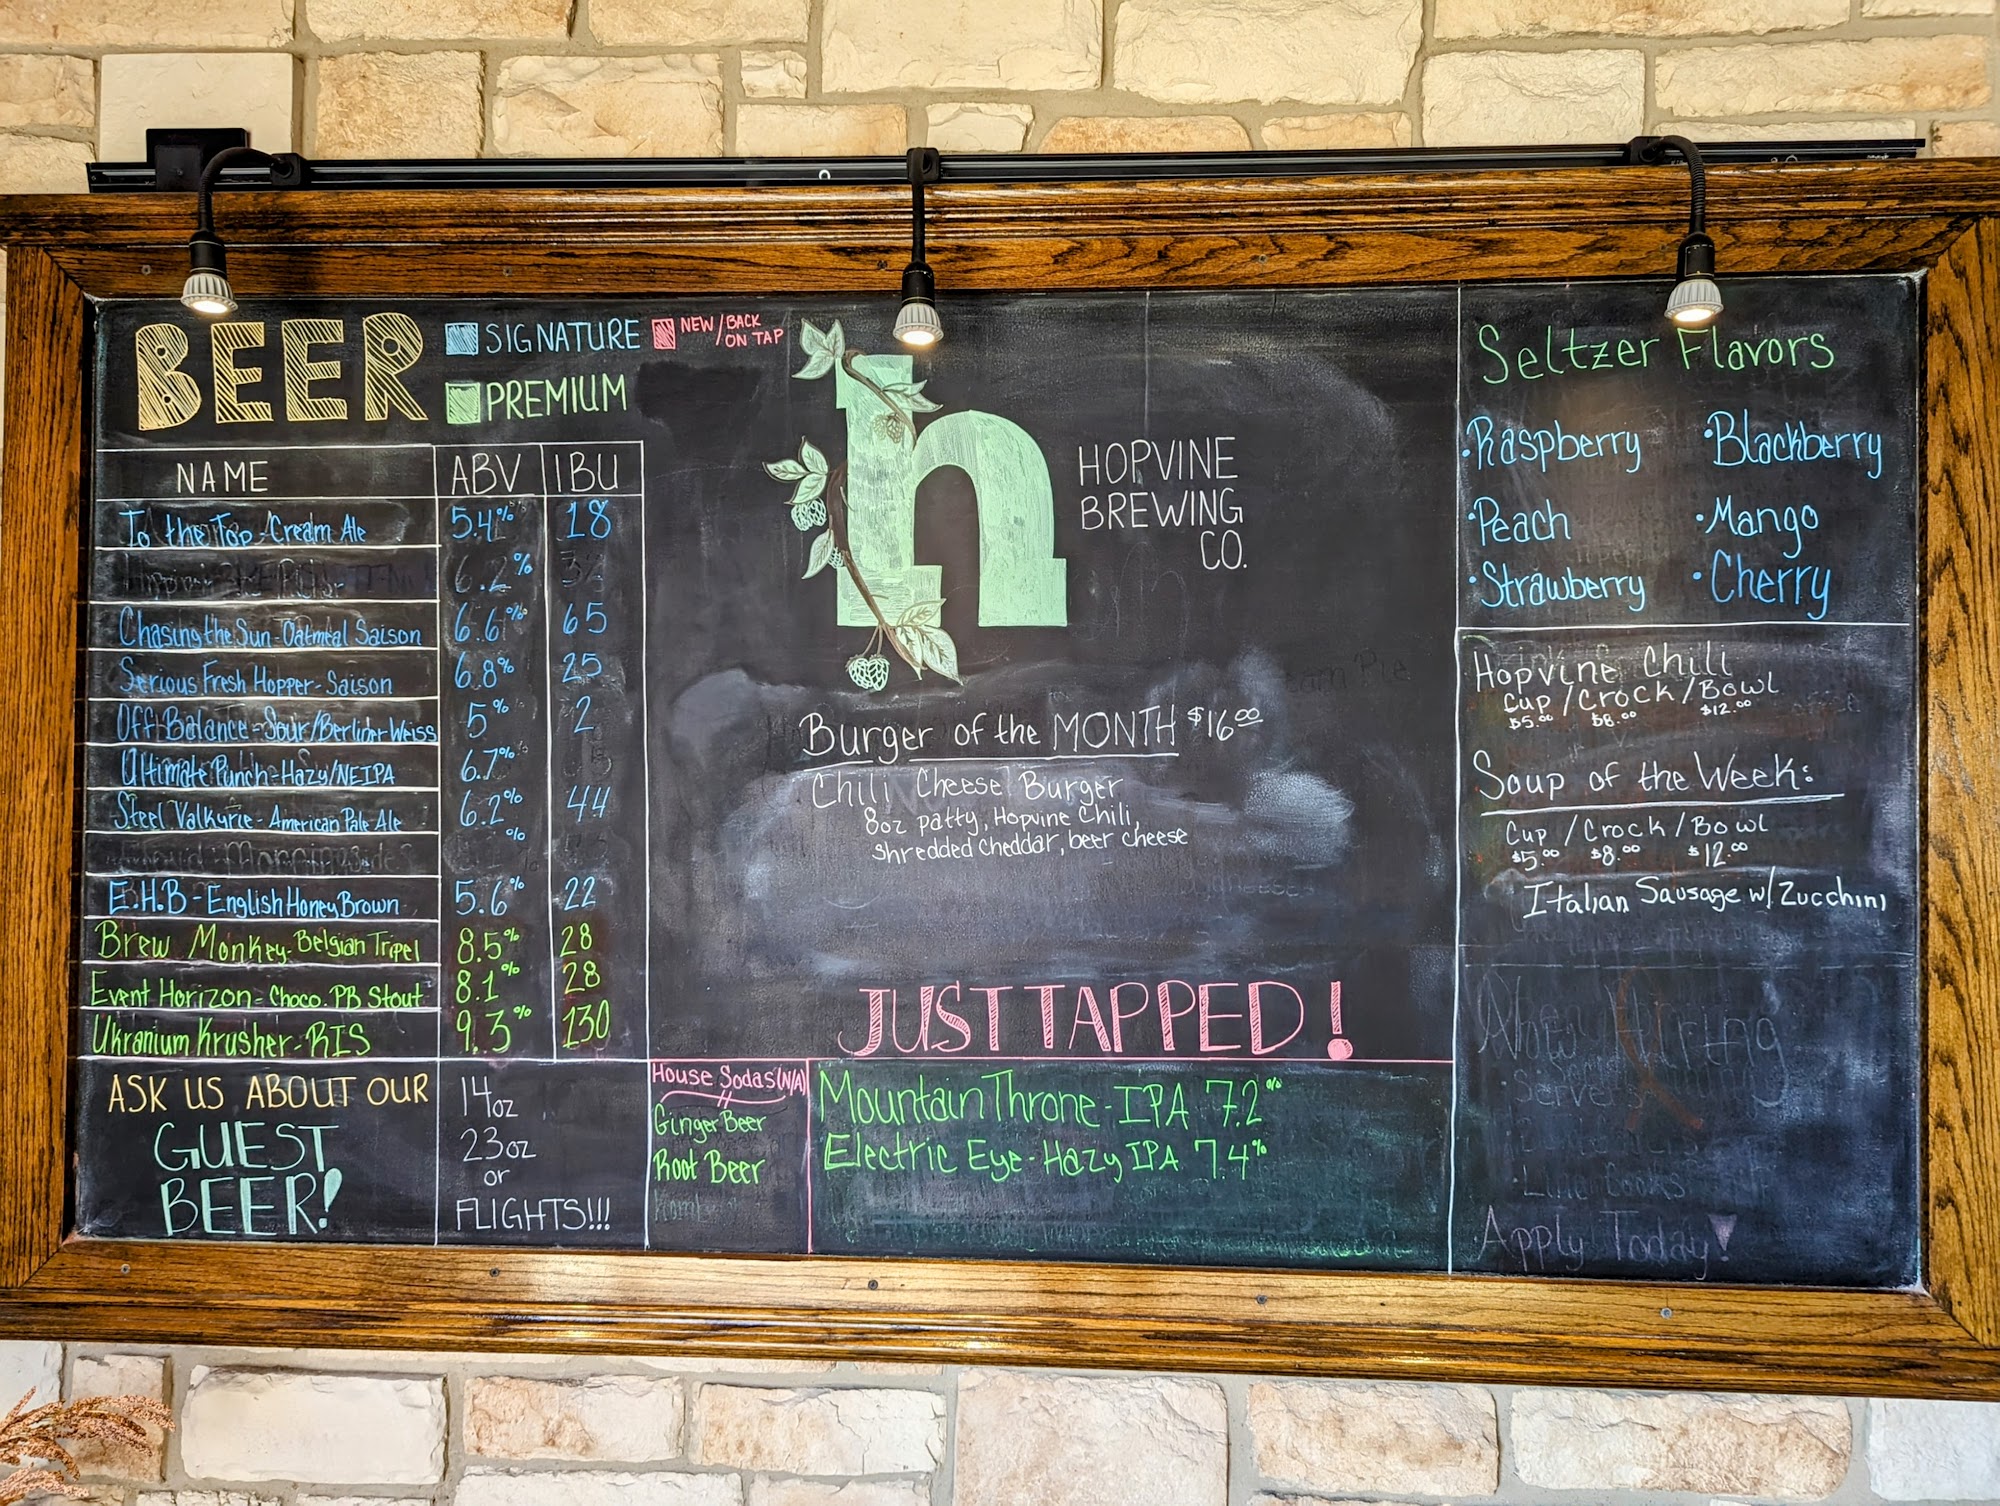 BEER
SIGNATURE
NEW/BACK
ON TAP
PREMIUM
NAME ABV IBU
To the Top - Cream Ale 5.4% 18
6.2%
Chasing the Sun - Oatmeal Saison 6.6% 65
Serious Fresh Hopper - Saison 6.8% 25
Off Balance - Sour/Berliner Weiss 5% 2
Ultimate Punch - Hazy/NEIPA 6.7%
Steel Valkyrie - American Pale Ale 6.2% 44
%
E.H.B - English Honey Brown 5.6% 22
Brew Monkey - Belgian Tripel 8.5% 28
Event Horizon - Choco. PB Stout 8.1% 28
Ukranium Krusher - RIS 9.3% 130
ASK US ABOUT OUR
GUEST
BEER!
14oz
23oz
or
FLIGHTS!!!
h
HOPVINE
BREWING
CO.
Burger of the MONTH $16.00
Chili Cheese Burger
8oz patty, Hopvine Chili,
shredded cheddar, beer cheese
JUST TAPPED!
House Sodas (N/A)
Ginger Beer
Root Beer
Mountain Throne - IPA 7.2%
Electric Eye - Hazy IPA 7.4%
Seltzer Flavors
•Raspberry •Blackberry
•Peach •Mango
•Strawberry •Cherry
Hopvine Chili
Cup / Crock / Bowl
$5.00 $8.00 $12.00
Soup of the Week:
Cup / Crock / Bowl
$5.00 $8.00 $12.00
Italian Sausage w/ Zucchini
Now Hiring
•Servers
•Line Cooks
Apply Today!